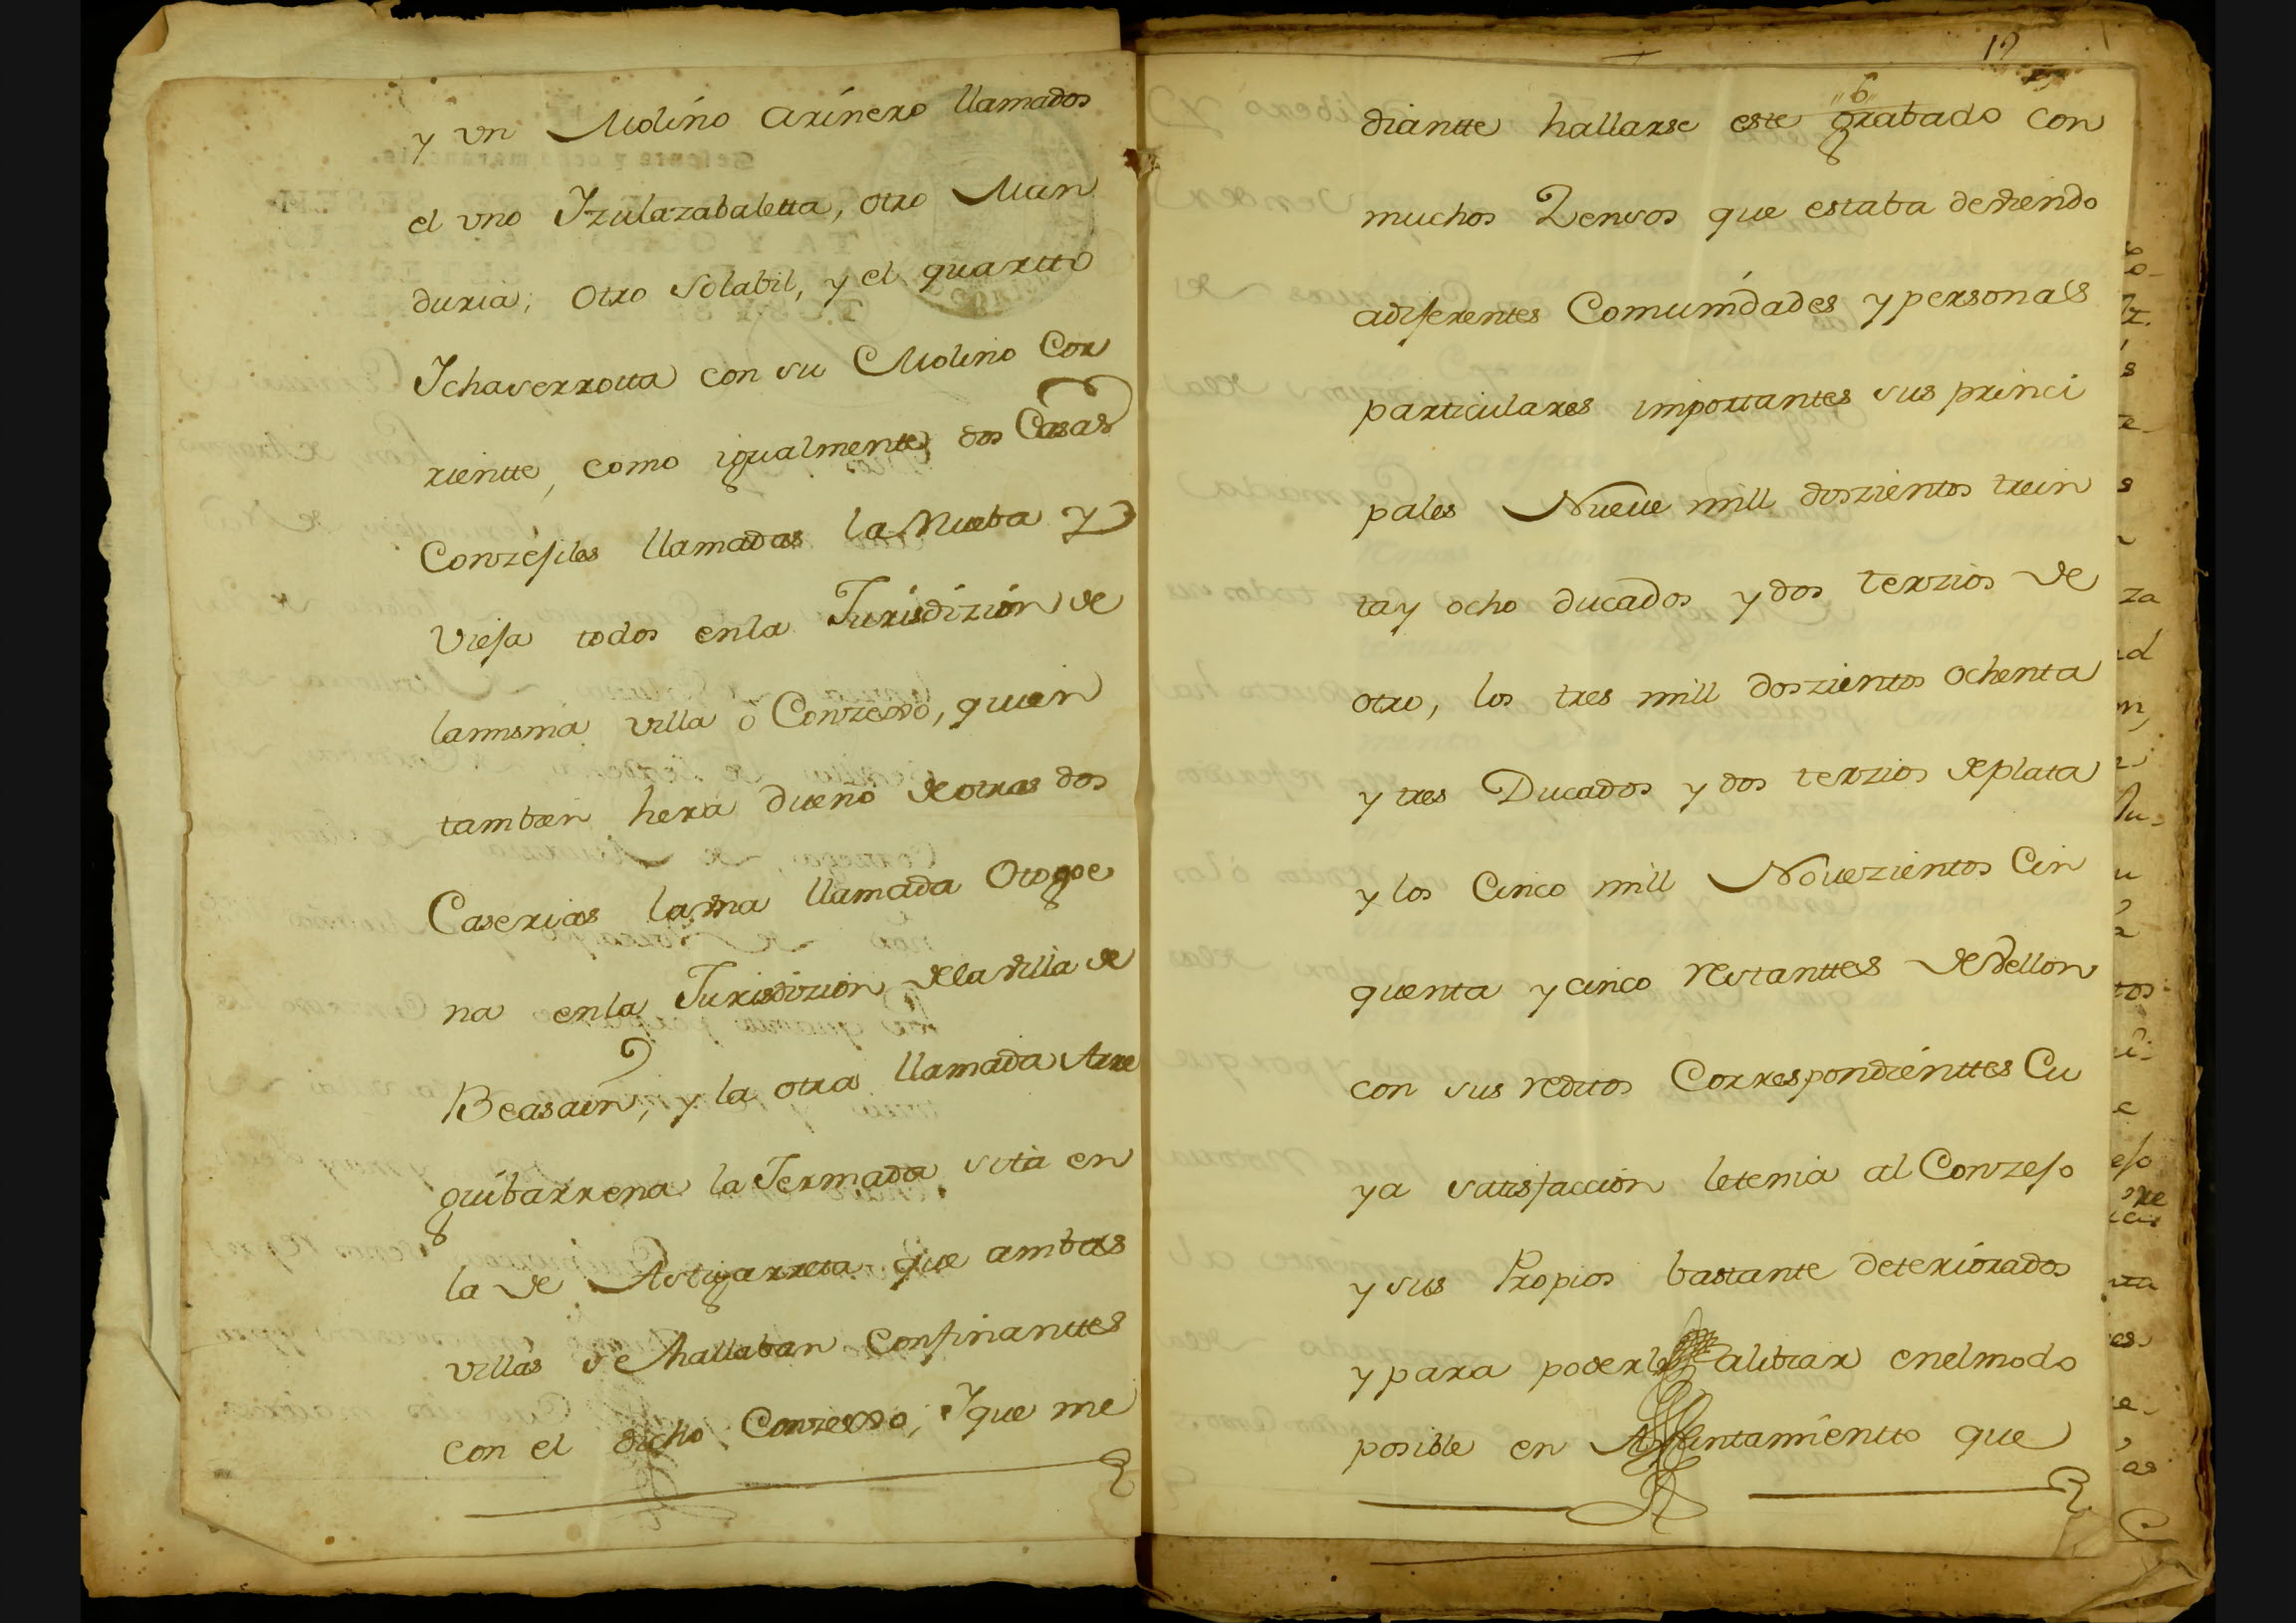 y vn Molino arinero llamados
el vno Yzulazabaletta, otro Man
duria, otro Solabil, y el quartto
Ychaverrotta con su Molino Cor
rientte, como igualmente dos Casas
Conzejiles llamadas la Nueba y
Vieja todos enla Jurisdizion de
lamisma villa ò Conzejo, quien
tambien hera dueño de otras dos
Caserias la vna llamada Otogoe
na enla Jurisdizion dela villa de
Beasain, y la otra llamada Arre
guibarrena la Jermada sita en
la de Astigarreta que ambas
villas se hallaban Confinanttes
con el dicho Conzejo, Y que me
19
6
diantte hallarse este grabado con
muchos Zensos que estaba deviendo
adiferentes Comunidades y personas
particulares importantes sus princi
pales Nueve mill doszientos trein
tay ocho ducados y dos terzios de
otro, los tres mill doszientos ochenta
y tres Ducados y dos terzios de plata
y los Cinco mill Novezientos Cin
quenta y cinco restanttes de vellon
con sus reditos Correspondienttes Cu
ya satisfaccion letenia al Conzejo
y sus Propios bastante deteriorados
y para poderle alibiar enelmodo
posible en Ayuntamientto que